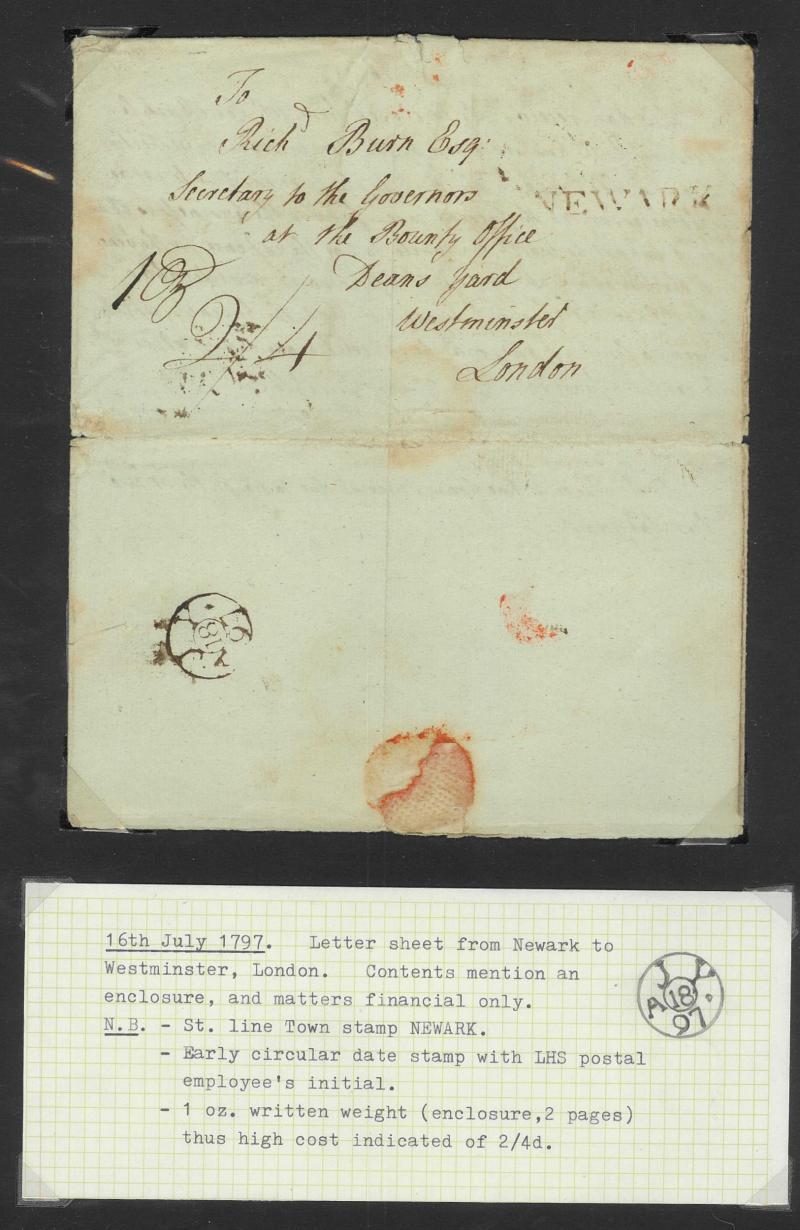 To
Richd Burn Esqr
Secretary to the Governors
at the Bounty Office
Deans Yard
Westminster
London
NEWARK
1 oz
2/4
JY
A 18
97
16th July 1797. Letter sheet from Newark to
Westminster, London. Contents mention an
enclosure, and matters financial only.
N.B. - St. line Town stamp NEWARK.
- Early circular date stamp with LHS postal
employee's initial.
- 1 oz. written weight (enclosure,2 pages)
thus high cost indicated of 2/4d.
JY.
A 18
97